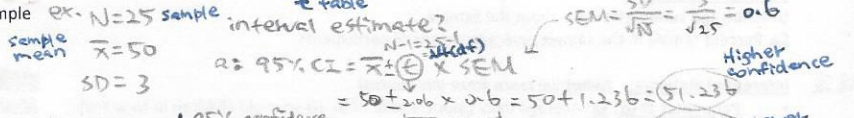 nple ex. N=25 sample t table
interval estimate? SEM= SD/√N = 3/√25 = 0.6
sample mean x̄=50 N-1=25-1 =24(df)
a: 95% CI = x̄ ± t × SEM Higher confidence
SD=3
= 50 ± 2.06 × 0.6 = 50+1.236 = 51.236
95% confidence